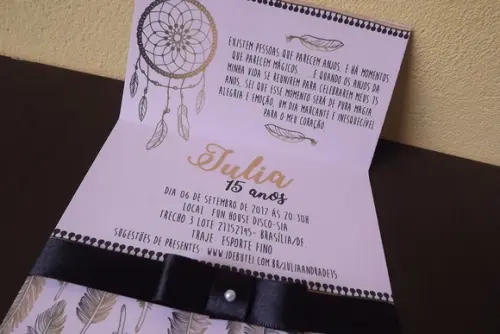 EXISTEM PESSOAS QUE PARECEM ANJOS, E HÁ MOMENTOS
QUE PARECEM MÁGICOS.... ...E QUANDO OS ANJOS DA
MINHA VIDA SE REUNIREM PARA CELEBRAREM MEUS 15
ANOS, SEI QUE ESSE MOMENTO SERÁ DE PURA MAGIA,
ALEGRIA E EMOÇÃO, UM DIA MARCANTE E INESQUECÍVEL
PARA O MEU CORAÇÃO
Julia
15 anos
DIA 06 DE SETEMBRO DE 2017 ÀS 20:30H
LOCAL FUN HOUSE DISCO-SIA
TRECHO 3 LOTE 2115/2145- BRASÍLIA/DF
TRAJE: ESPORTE FINO
SUGESTÕES DE PRESENTES: WWW.IDEBUTEI.COM.BR/JULIAANDRADE15